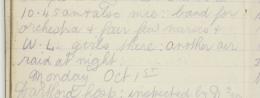 10.45am also mis: band for
orchestra & fair few nurses &
W.L. girls there: another air
raid at night.
Monday Oct 1st
Dartford hosp: inspected by D